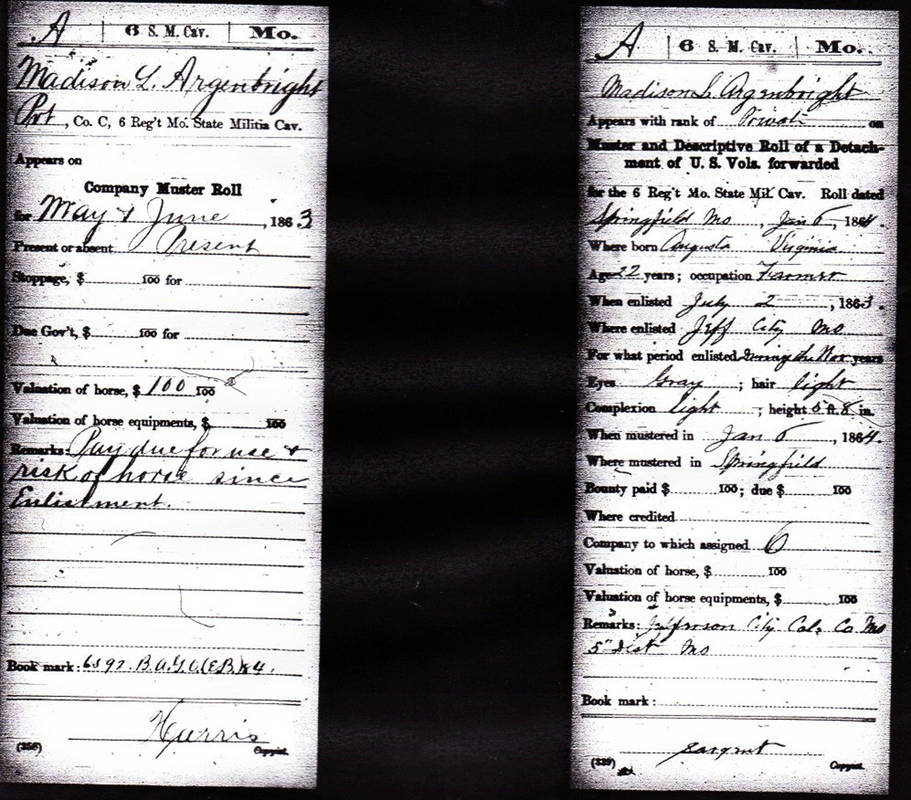 A | 6 S. M. Cav. | Mo.
Madison L. Argenbright
Pvt, Co. C, 6 Reg't Mo. State Militia Cav.
Appears on
Company Muster Roll
for May & June, 1863
Present or absent Present
Stoppage, $ 100 for
Due Gov't, $ 100 for
Valuation of horse, $ 100 100
Valuation of horse equipments, $ 100
Remarks: Pay due for use &
risk of horse since
Enlistment.
Book mark:
Harris
(358) Copyist.
A | 6 S. M. Cav. | Mo.
Madison L. Argenbright
Appears with rank of Privat on
Muster and Descriptive Roll of a Detach-
ment of U. S. Vols. forwarded
for the 6 Reg't Mo. State Mil. Cav. Roll dated
Springfield Mo Jan 6, 1864.
Where born Augusta Virginia
Age 22 years; occupation Farmer
When enlisted July 2, 1863.
Where enlisted Jeff City Mo
For what period enlisted during the War years
Eyes Gray; hair light
Complexion light; height 5 ft. 8 in.
When mustered in Jan 6, 1864.
Where mustered in Springfield
Bounty paid $ 100; due $ 100
Where credited
Company to which assigned
Valuation of horse, $ 100
Valuation of horse equipments, $ 100
Remarks: Jefferson City Co. Mo
5" Dist Mo
Book mark:
Sargent
(339) Copyist.